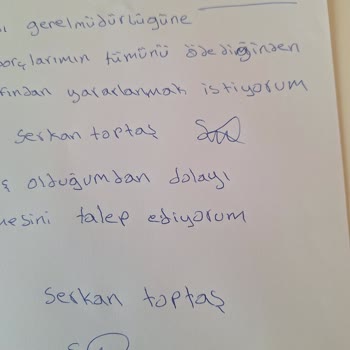 gerelmüdürlüğüne
borçlarımın tümünü ödediğinden
yararlanmak istiyorum
serkan toptaş
olduğumdan dolayı
talep ediyorum
serkan toptaş